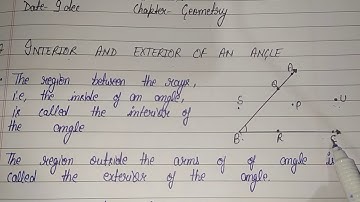 Date- 9 dec Chapter- Geometry
INTERIOR AND EXTERIOR OF AN ANGLE
The region between the rays,
i.e, the inside of an angle,
is called the interior of
the angle
A
Q
S
P
U
B
R
C
The region outside the arms of of angle is
called the exterior of the angle.